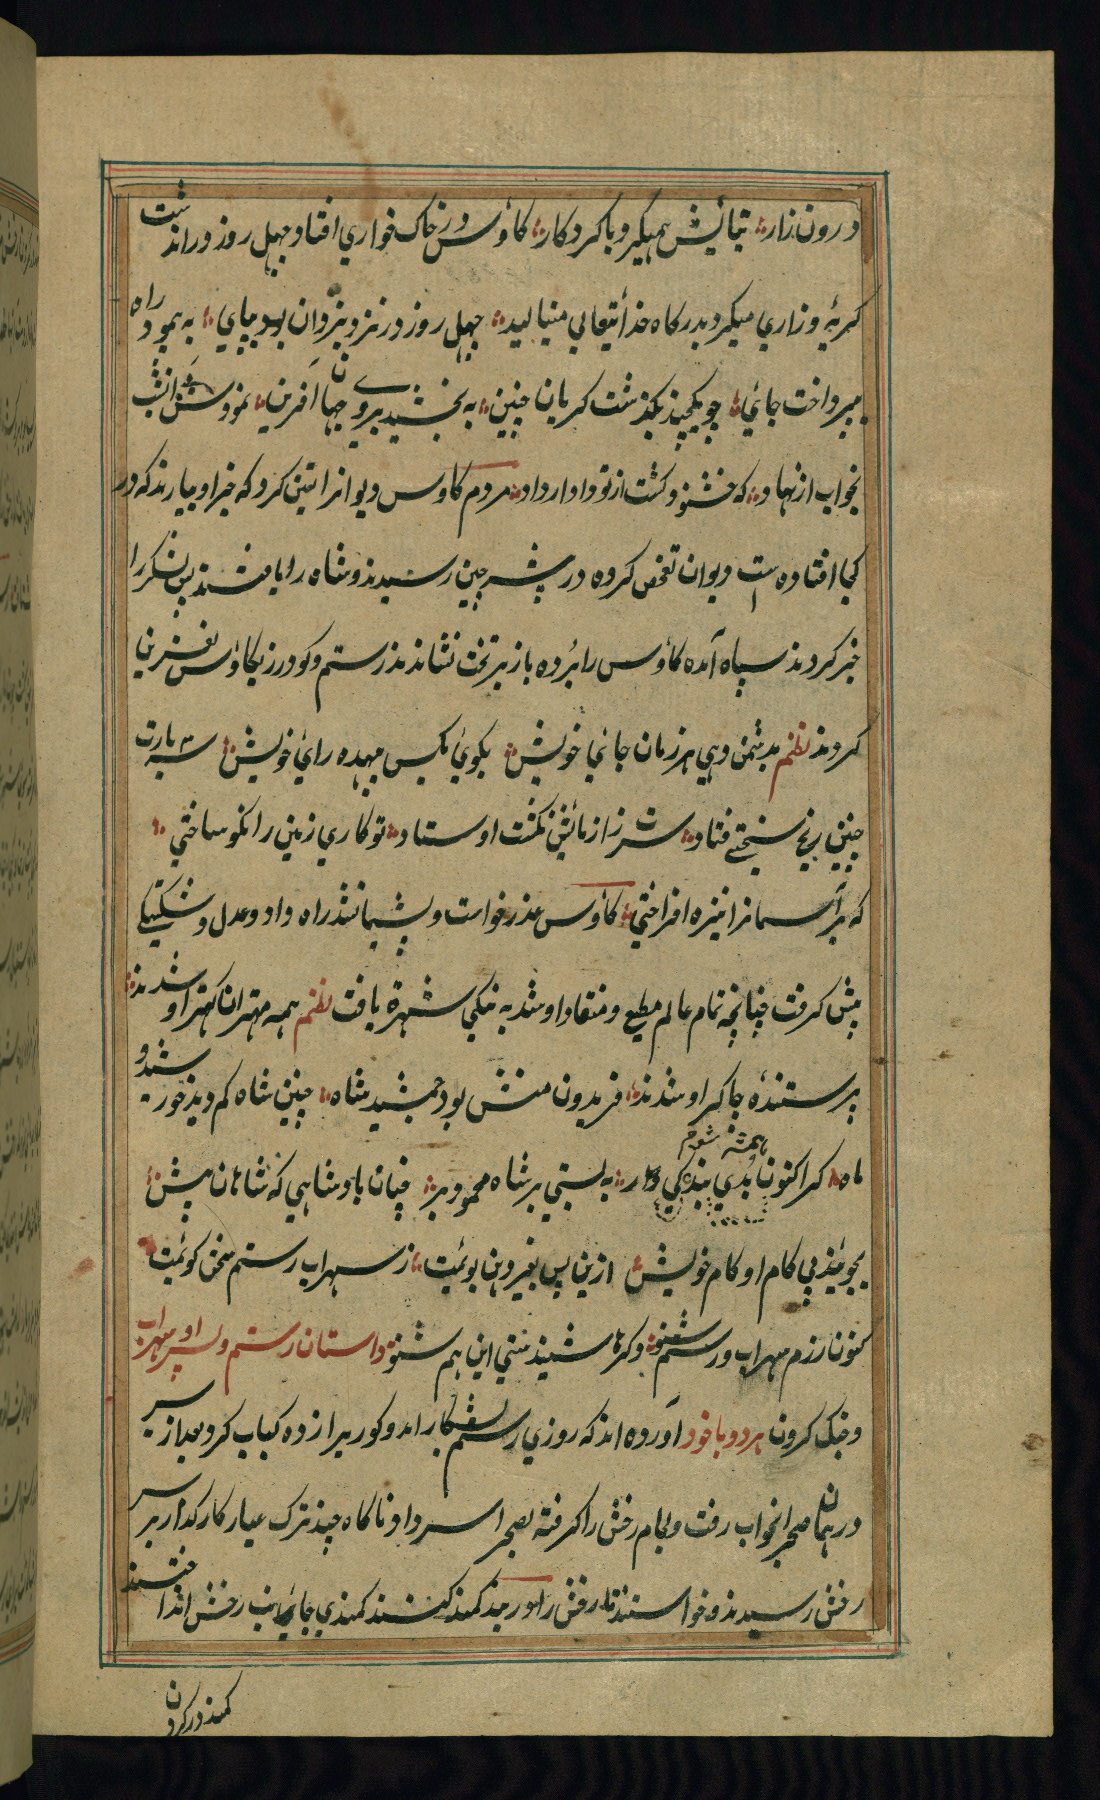 درون زار؞ نیایش همیکرد با کردکار؞ کاوس در خاک خواری افتاد چهل روز دران دشت
کریه و زاری میکرد بدرکاه خدایتعالی مینالید؞ چهل روز در نزد یزدان بپای؞ به پیمود راه
بپرداخت جای؞ چو یکچند بکذشت کریان چنین؞ به بخشید بر وی جهان آفرین؞ نمودش
بخواب از نهاد؞ که خشنود کشت از تو داوار داد؞ مردم کاوس دیوانرا تعین کرد که خبر او بیارند که در
کجا افتاده است دیوان تفحص کرده در شهر چین رسیدند و شاه را یافتند پس لشکر را
خبر کردند سپاه آمده کاوس را برده باز بر تخت نشاندند رستم و کودرز بکاوس نفرین
کردند نظم بدشمن دهی هر زمان جای خویش؞ بکوئی بکس بیهده رای خویش؞ سه بارت
چنین رنج سختی فتاد؞ سرت ز ازمائش نکشت اوستاد؞ تو کاری زمین را نکو ساختی؞
که بر آسمانرا نیزه افراختی؞ کاوس عذر خواست و پشیمانشد راه داد و عدل و
پیش کرفت چنانچه تمام عالم مطیع و منقاد او شد به نیکی شهره یافت نظم همه مهتران کهتر او شدند؞
پرستنده چاکر او شدند؞ فریدون منش بود جمشید شاه؞ چنین شاه کم دید خورشید و
ماه؞ کر اکنون بدی به پستی بر شاه محمود بر؞ چنان پادشاهی که شاهان پیش؞
بجویند پی کام او کام خویش؞ ازین پس بغیر دهن بوئمت؞ ز سهراب رستم سخن کوئمت؞
کنون رزم سهراب و رستم شنو؞ دکرها شنیدستی این هم شنو؞ داستان رستم و پسر او سهراب
و جنک کردن هر دو با خود آورده اند که روزی رستم بشکار آمد و کور بر ازده کباب کرد بعد از سیر
در همان صحرا بخواب رفت و لجام رخش را کرفته بصحرا سر داد ناکاه چند ترک عیار کار کدار بر سر
رخش رسیدند و خواستند تا رخش را در بند کمند کنند کمندی بجانب رخش انداختند
کمند در کردن